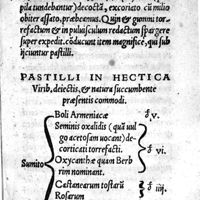 pila tundebantur) decoctā, excoriato cū milio
obiter assato, præbemus. Quin & gummi torrefactum
& in puluisculum redactum spargere
super expedit. cōducunt item magnifice, qui subijciuntur
pastilli.
PASTILLI IN HECTICA
Virib. deiectis, & natura succumbente
præsentis commodi.
Boli Armeniacæ ʒ v.
Seminis oxalidis (quā uulgo
acetosam uocant) decorticati
torrefacti.
Oxyacanthæ quam Berberim
nominant. ʒ vi.
Sumito
Castanearum tostarū
Rosarum ʒ iiij.